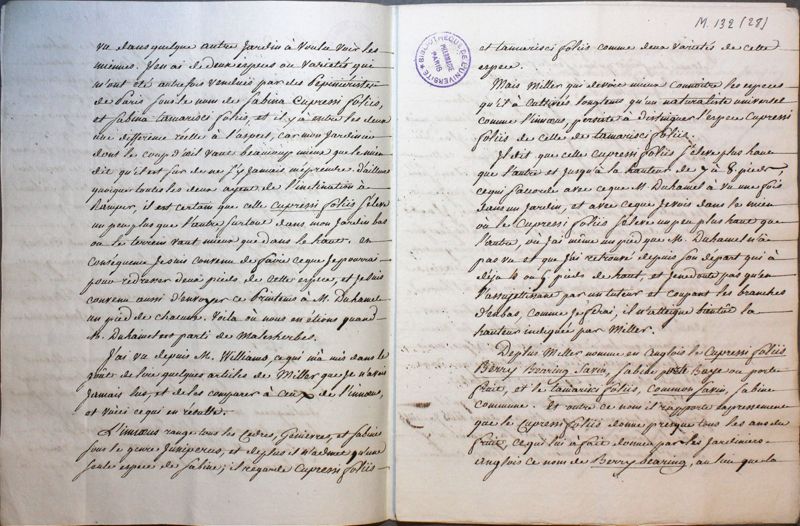 vu dans quelque autre Jardin à voulu voir les
miennes. J'en ai de deux especes ou varietés qui
m'ont été autrefois vendues par des Pepinieristes
de Paris sous le nom de Sabina Cupressi foliis,
et Sabina tamarisci foliis, et il y a entre les deux
une difference reelle à l'aspect, car mon Jardinier
dont le coup d'œil vaut beaucoup mieux que le mien
dit qu'il est sûr de ne s'y jamais meprendre. d'ailleurs
quoique toutes les deux ayent de l'inclination à
ramper, il est certain que celle Cupressi foliis s'eleve
un peu plus que l'autre surtout dans mon Jardin bas
où le terrein vaut mieux que dans le haut. en
consequence Je suis convenu de faire ce que Je pourrai
pour redresser deux pieds de cette espece, et Je suis
convenu aussi d'envoyer ce Printems à M. Duhamel
un pied de chacune. Voila où nous en étions quand
M. Duhamel est parti de Malesherbes.
J'ai vu depuis M. Williams, ce qui m'a mis dans le
goût de lire quelques articles de Miller que Je n'avois
Jamais lus, et de les comparer à ceux de Linnœus,
et voici ce qui en resulte.
Linnœus range tous les Cedres, Genievres, et Sabines
sous le genre Juniperus, et de plus il n'admet qu'une
seule espece de Sabine; il regarde Cupressi foliis
M. 132 (28)
BIBLIOTHEQUE DE L'UNIVERSITE
PARIS
et tamarisci foliis comme deux varietés de cette
espece.
Mais Miller qui devoit mieux connoitre les especes
qu'il à cultivées longtems qu'un naturaliste universel
comme Linnœus, persiste à distinguer l'espece Cupressi
foliis de celle de tamarisci foliis.
Il dit que celle Cupressi foliis s'eleve plus haut
que l'autre et jusqu'à la hauteur de 7 à 8. pieds,
ce qui s'accorde avec ce que M. Duhamel à vu une fois
dans un Jardin, et avec ce que Je vois dans le mien
où le Cupressi foliis s'eleve un peu plus haut que
l'autre, où J'ai même un pied que M. Duhamel n'a
pas vu et que J'ai retrouvé depuis son depart qui à
déja 4 ou 5 pieds de haut, et Je ne doute pas qu'en
l'assujetissant par un tuteur et coupant les branches
d'en bas, comme Je ferai, il n'atteigne bientot la
hauteur indiquée par Miller.
De plus Miller nomme en Anglois le Cupressi foliis
Berry Bearing Savin, Sabine porte Baye ou porte
fruit, et le tamarisci foliis, Common Savin, Sabine
commune. Et outre ce nom il rapporte expressement
que le Cupressi foliis donne presque tous les ans du
fruit, ce qui lui à fait donner par les Jardiniers
Anglois ce nom de Berry bearing, au lieu que la